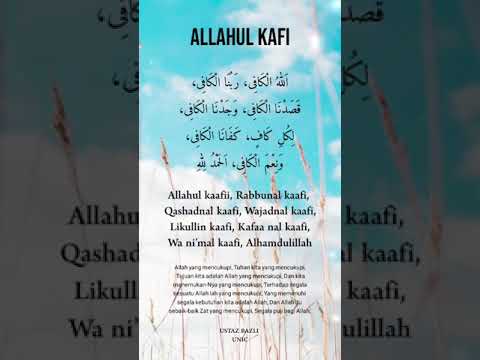 ALLAHUL KAFI
اَللهُ الْكَافِى، رَبُّنَا الْكَافِى،
قَصَدْنَا الْكَافِى، وَجَدْنَا الْكَافِى،
لِكُلِ كَافٍ، كَفَانَا الْكَافِى،
وَنَعْمَ الْكَافِى، اَلْحَمْدُ لِلهِ
Allahul kaafii, Rabbunal kaafi,
Qashadnal kaafi, Wajadnal kaafi,
Likullin kaafi, Kafaa nal kaafi,
Wa ni'mal kaafi, Alhamdulillah
Allah yang mencukupi, Tuhan kita yang mencukupi,
Tujuan kita adalah Allah yang mencukupi, Dan kita
menemukan-Nya yang mencukupi, Terhadap segala
sesuatu Allah lah yang mencukupi, Yang memenuhi
segala kebutuhan kita adalah Allah, Dan Allah itu
sebaik-baik Zat yang mencukupi, Segala puji bagi Allah.
USTAZ RAZLI
UNIC